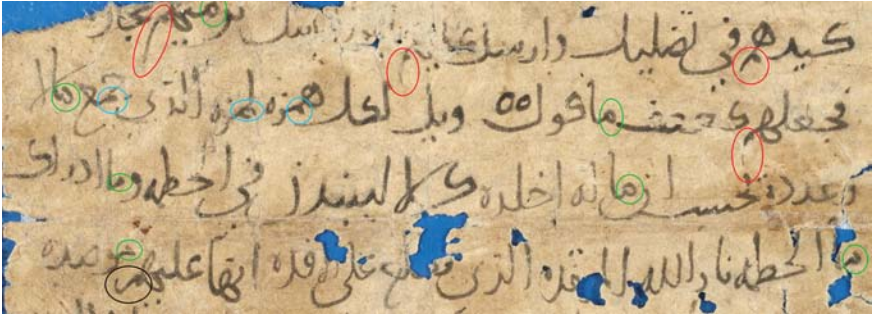 كيدهم في تضليل وارسل عليهم ترميهم بحجار
فجعلهم كعصف ماكول ٥٥ ويل لكل همزه لمزه الذي جمع مالا
وعدده يحسب ان ماله اخلده كلا لينبذن في الحطمه وما ادراك
ما الحطمه نار الله الموقده الذي تطلع على الافده انها عليهم موصده